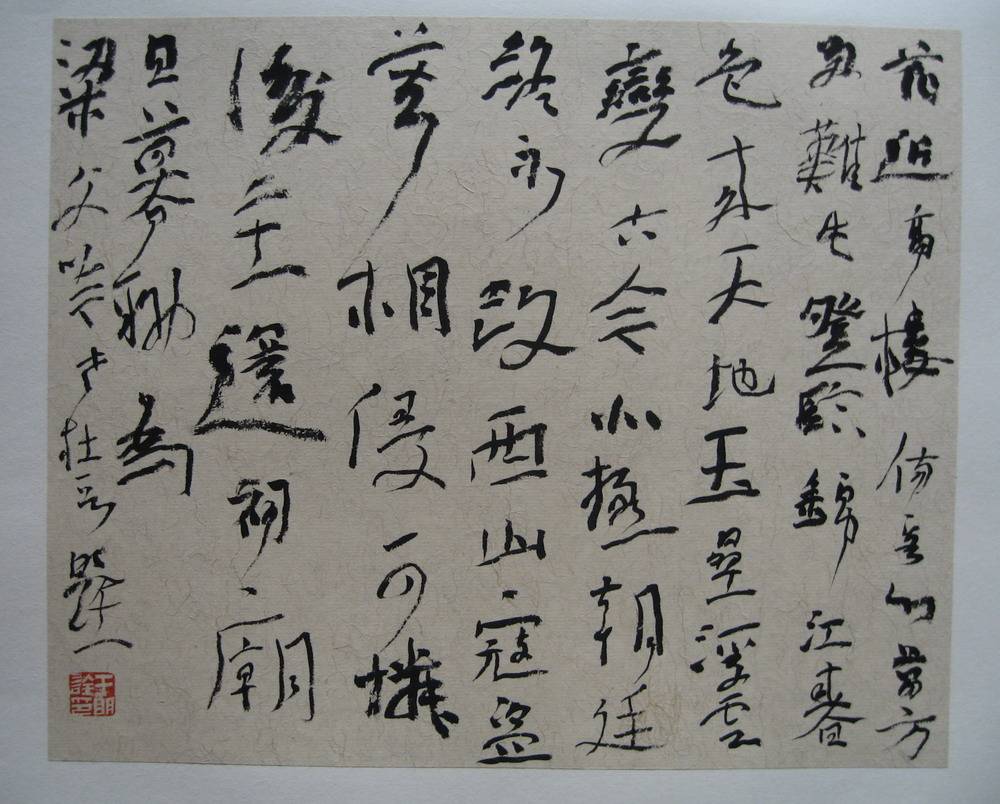 花近高樓傷客心萬方
多難此登臨錦江春
色來天地玉壘浮雲
變古今北極朝廷
終不改西山寇盜
莫相侵可憐
後主還祠廟
日暮聊為
梁父吟 杜